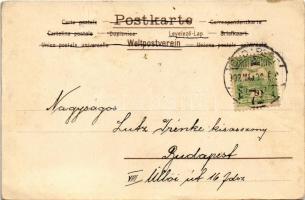 Postkarte
Carte postale Correspondentkarte
Cartolina postale Dopisnice Levelező-Lap Briefkaart
Union postale universelle Weltpostverein Unione postale
Nagyságos
Lutz Irénke kisasszony
Budapest
VIII Üllői út 16